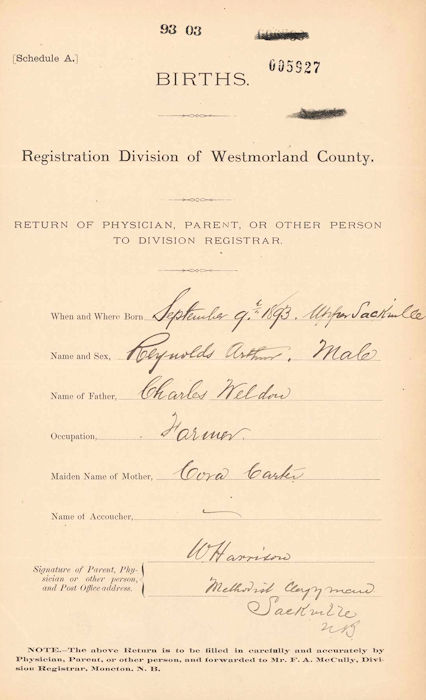 93 03
[Schedule A.]
005927
BIRTHS.
Registration Division of Westmorland County.
RETURN OF PHYSICIAN, PARENT, OR OTHER PERSON
TO DIVISION REGISTRAR.
When and Where Born September 9th 1893. Upper Sackville
Name and Sex, Reynolds Arthur. Male
Name of Father, Charles Weldon
Occupation, Farmer.
Maiden Name of Mother, Cora Carter
Name of Accoucher, —
W Harrison
Signature of Parent, Phy-
sician or other person,
and Post Office address.
Methodist Clergyman
Sackville
NB
NOTE.—The above Return is to be filled in carefully and accurately by
Physician, Parent, or other person, and forwarded to Mr. F. A. McCully, Divi-
sion Registrar, Moncton, N. B.